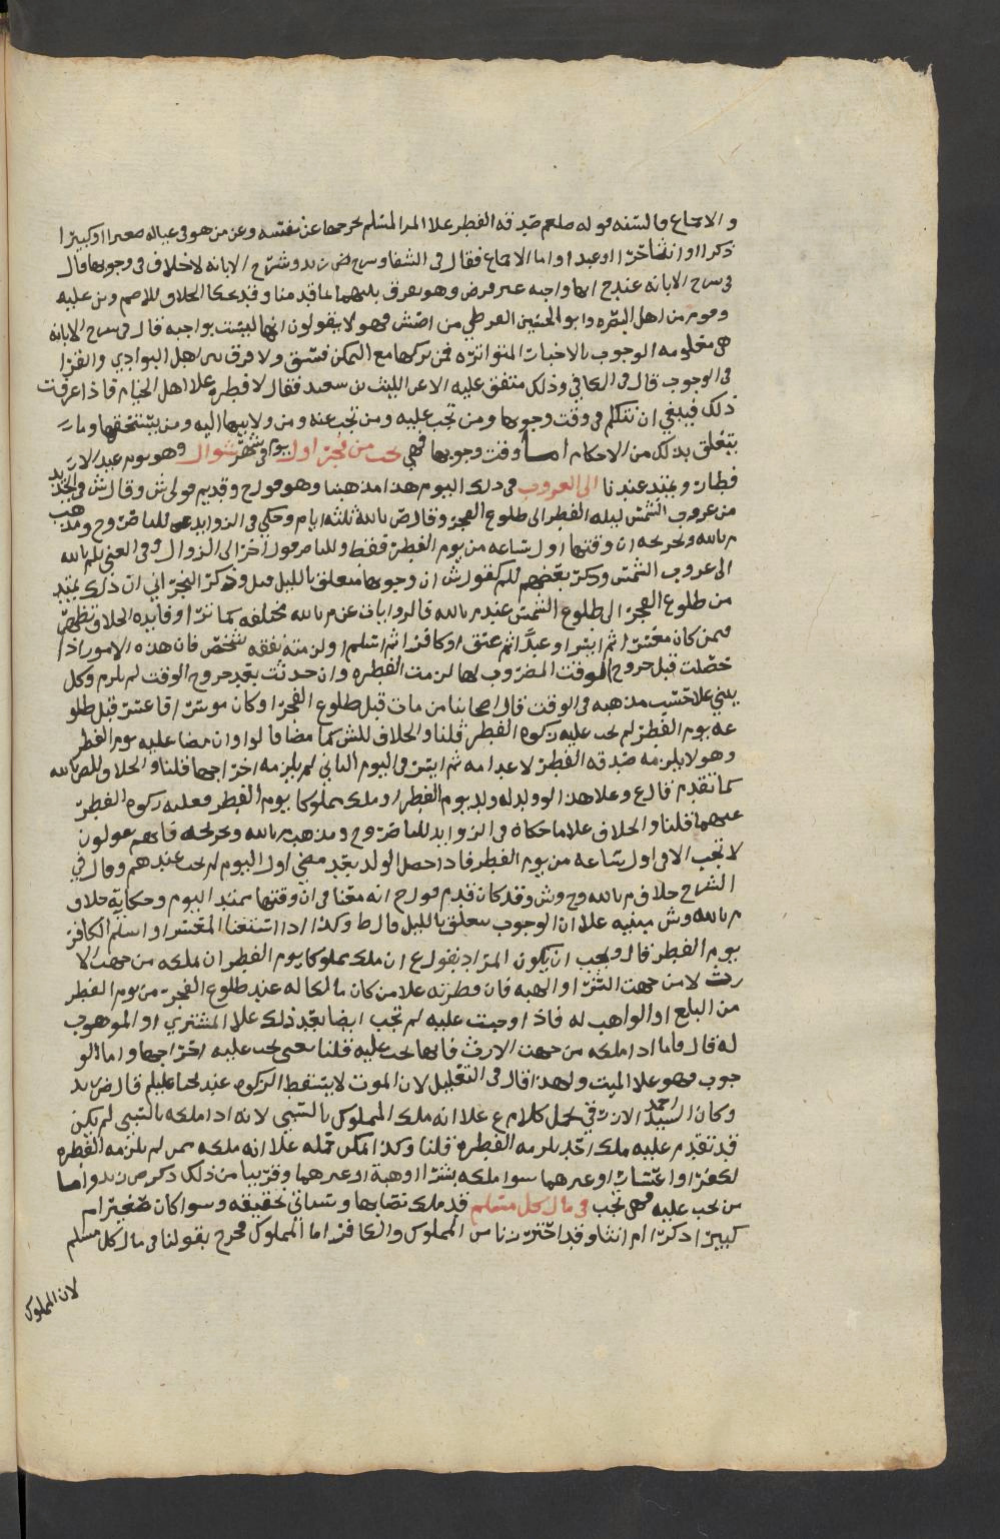 والاجماع فالسنه قوله صلعم صدقه الفطر علا المرا المسلم يخرجها عن نفسه وعن من هو فى عياله صغيرا او كبيرا
ذكرا او انثا حرا او عبدا واما الاجماع فقال فى الشفا وشرح ض زيد وشرح الابانه لا خلاف فى وجوبها وقال
فى شرح الابانه عند ح انها واجبه غير فرض وهو يفرق بينهما كما قدمنا وقد حكا الخلاف للاصم وبن عليه
وقوم من اهل البصره وابو الحسين القرطي من اصش فهولا يقولون انها ليست بواجبه قال فى شرح الابانه
هى معلومه الوجوب بالاخبار المتواتره فمن تركها مع التمكن فسق ولا فرق بين اهل البوادي والقرا
فى الوجوب قال فى الكافي وذلك متفق عليه الا عن الليث بن سعد فقال لا فطره علا اهل الخيام فاذا عرفت
ذلك فينبغي ان نتكلم فى وقت وجوبها ومن تجب عليه ومن تجب عنه ومن ولايتها اليه ومن يستحقها وما
يتعلق بذلك من الاحكام اما وقت وجوبها فهي تجب من فجر اول يوم فى شهر شوال وهو يوم عيد الا
فطار ويمتد عندنا الى الغروب فى ذلك اليوم هذا مذهبنا وهو قول ح وقديم قولي ش وقال ش فى الجديد
من غروب الشمس ليله الفطر الى طلوع الفجر وقال ص بالله ثلثه ايام وحكي فى الزوايد عن للناصر وح ومذهب
م بالله وتخريجه ان وقتها اول ساعه من يوم الفطر فقط وللناصر قول اخر الى الزوال وفى المغني للم بالله
الى غروب الشمس وذكر بعضهم للم كقول ش ان وجوبها متعلق بالليل قيل وذكر النجراني ان ذلك يمتد
من طلوع الفجر الى طلوع الشمس عند م بالله فالروايات عن م بالله مختلفه كما ترا وفايده الخلاف تظهر
فيمن كان معسرا ثم ايسر او عبدا ثم عتق او كافرا ثم اسلم او لزمته نفقه شخص فان هذه الامور اذا
حصلت قبل خروج الوقت المضروب لها لزمت الفطره وان حدثت بعد خروج الوقت لم يلزم وكل
يبني علا حسب مذهبه فى الوقت قال اصحابنا من مات قبل طلوع الفجر او كان موسرا فاعسر قبل طلو
عه يوم الفطر لم تجب عليه زكوه الفطر قلنا والخلاف للش كما مضا قالوا وان مضا عليه يوم الفطر
وهو لا يلزمه صدقه الفطر لاعدامه ثم ايسر فى اليوم الثاني لم يلزمه اخراجها قلنا والخلاف للص بالله
كما تقدم قال ع وعلا هذا لو ولد له ولد يوم الفطر او ملك مملوكا يوم الفطر فعليه زكوه الفطر
عنهما قلنا والخلاف علا ما حكاه فى الزوايد للناصر وح ومذهب م بالله وتخريجه فانهم يقولون
لا تجب الا فى اول ساعه من يوم الفطر فاذا حصل الولد بعد مضي اول اليوم لم تجب عندهم وقال في
الشرح خلاف م بالله وح وش وقد كان قدم قول ح انه معنا فى ان وقتها يمتد اليوم وحكاية خلاف
م بالله وش مبنيه علا ان الوجوب يتعلق بالليل قال ط وكذا اذا استغنا المعسر او اسلم الكافر
يوم الفطر قال ويجب ان يكون المراد بقول ع ان ملك مملوكا يوم الفطر ان ملكه من جهت الا
رث لا من جهت الشرا او الهبه فان فطرته علا من كان مالكا له عند طلوع الفجر من يوم الفطر
من البايع او الواهب له فاذا وجبت عليه لم تجب ايضا بعد ذلك علا المشتري او الموهوب
له قال فاما اذا ملكه من جهت الارث فانها تجب عليه قلنا يعني تجب عليه اخراجها واما الو
جوب فهو علا الميت ولهذا قال فى التعليل لان الموت لا يسقط الزكوه عند يحيا عليلم قال ض زيد
وكان السيد احمد الازرقي يحمل كلام ع علا انه ملك المملوك بالسبي لانه اذا ملكه بالسبي لم يكن
قد تقدم عليه ملك احد يلزمه الفطره قلنا وكذا يمكن حمله علا انه ملكه ممن لم يلزمه الفطره
لكفر او اعسار او غيرهما سوا ملكه بشرا او هبة او غيرهما وقريبا من ذلك ذكر ض زيد واما
من تجب عليه فهى تجب فى مال كل مسلم قد ملك نصابها وسياتي تحقيقه وسوا كان صغيرا ام
كبيرا ذكرا ام انثا وقد احترزنا من المملوك والكافر اما المملوك فخرج بقولنا فى مال كل مسلم
لان المملوك